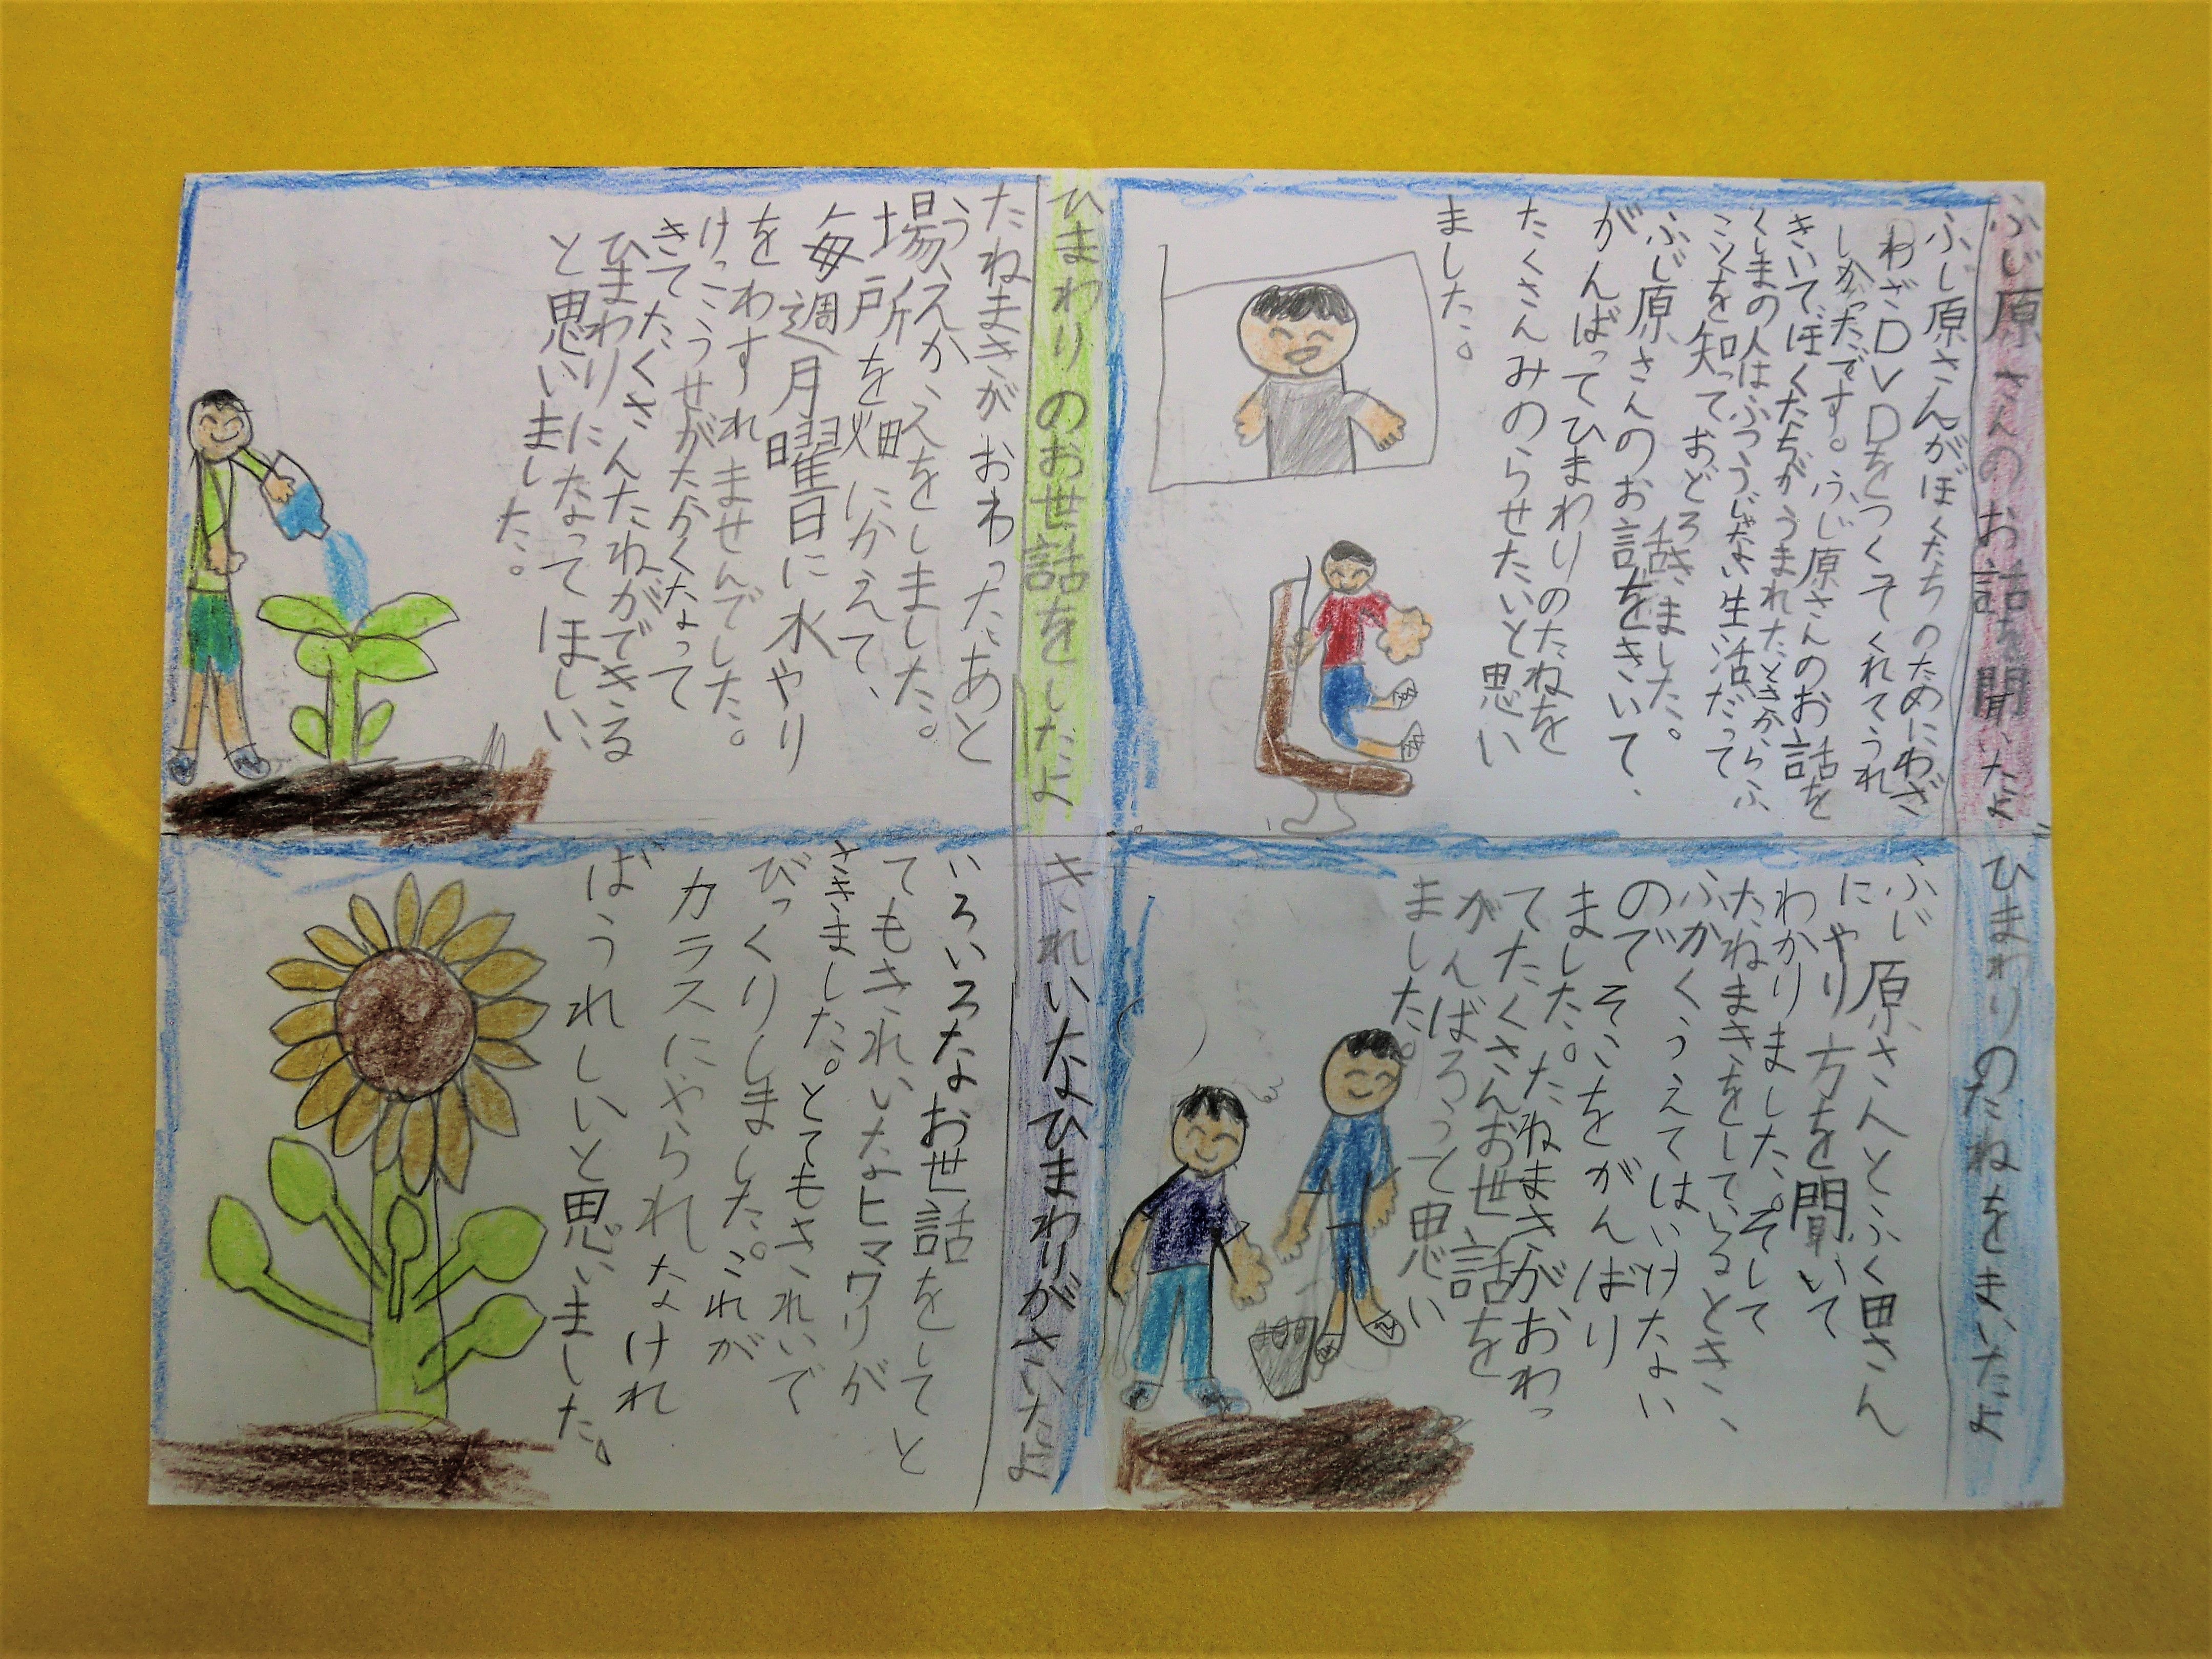 ふじ原さんのお話を聞いたよ
ふじ原さんがぼくたちのためにわざ
わざDVDをつくってくれてうれ
しかったです。ふじ原さんのお話を
きいてぼくたちがうまれたときからふ
くしまの人はふつうじゃない生活だって
ことを知っておどろきました。
ふじ原さんのお話をきいて、
がんばってひまわりのたねを
たくさんみのらせたいと思い
ました。
ひまわりのたねをまいたよ
ふじ原さんとふく田さん
にやり方を聞いて
わかりました。そして
たねまきをしているとき、
ふかくうえてはいけない
のでそこをがんばり
ました。たねまきがおわっ
てたくさんお世話を
がんばろうって思い
ました。
ひまわりのお世話をしたよ
たねまきがおわったあと
うえかえをしました。
場所を畑にかえて、
毎週月曜日に水やり
をわすれませんでした。
けっこうせがたかくなって
きてたくさんたねができる
ひまわりになってほしい
と思いました。
きれいなひまわりがさいたよ
いろいろなお世話をしてと
てもきれいなヒマワリが
さきました。とてもきれいで
びっくりしました。これが
カラスにやられなけれ
ばうれしいと思いました。